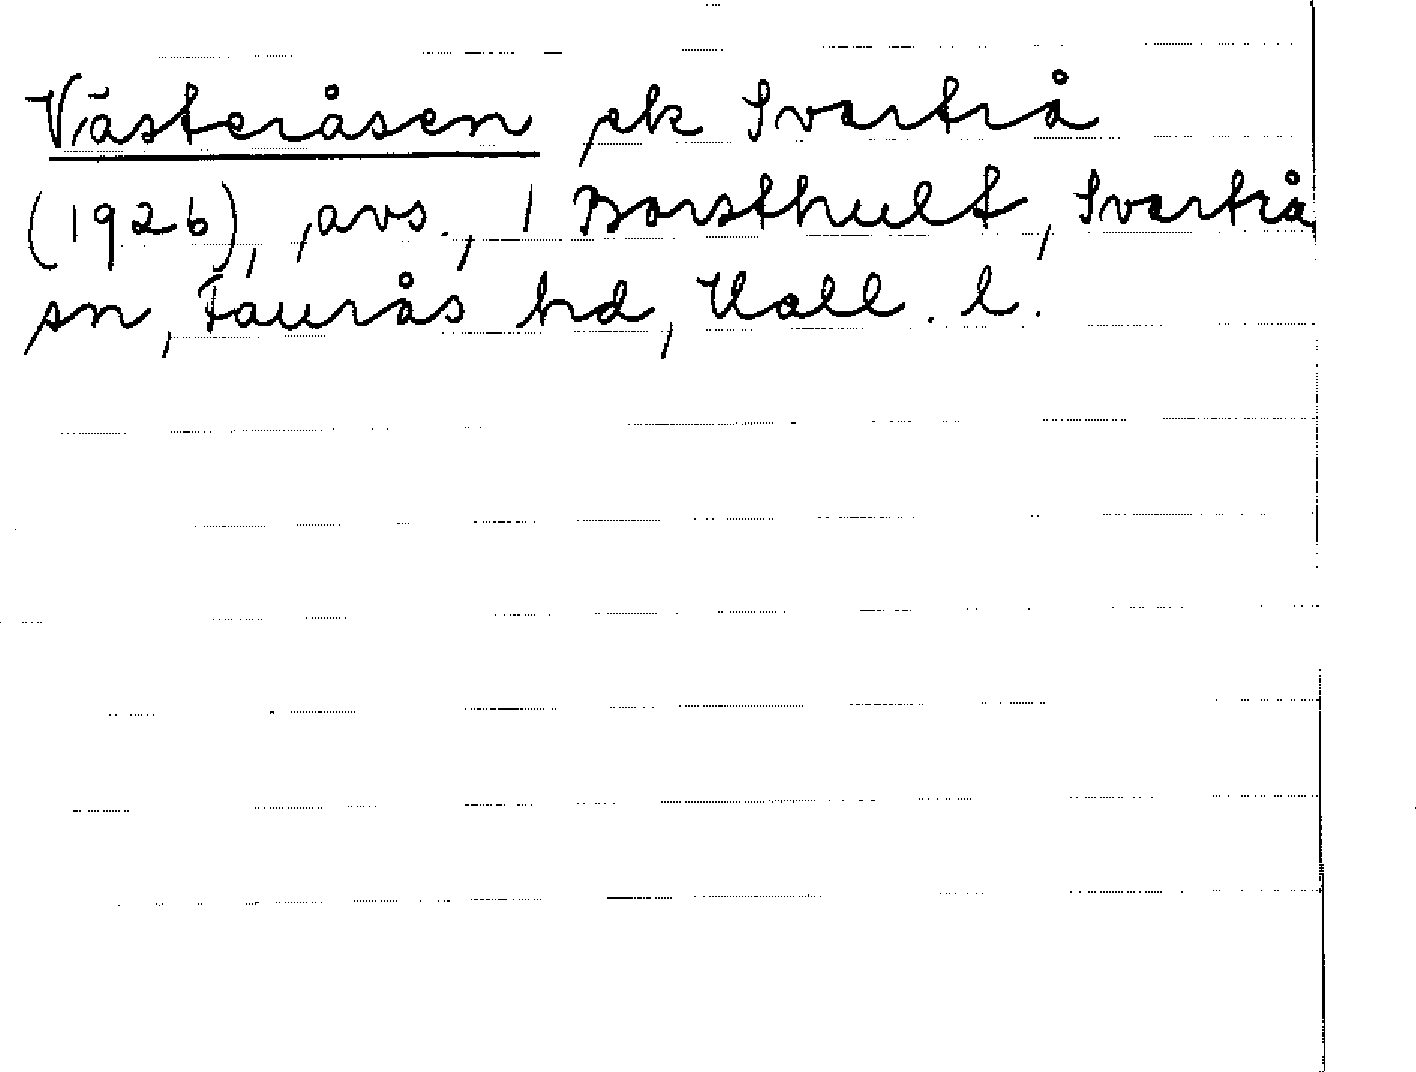 Västeråsen ek Svartrå
(1926), avs., 1 Borsthult, Svartrå
sn, Faurås hd, Hall. l.